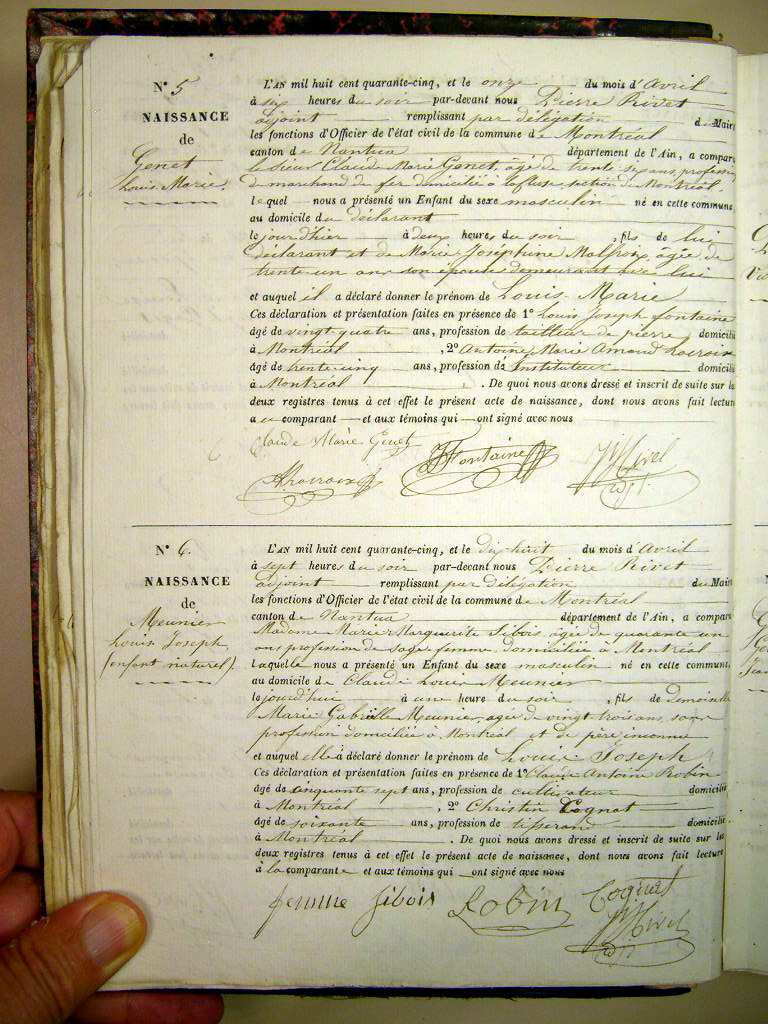 N° 5
NAISSANCE
de
Genet
Louis Marie.
L'AN mil huit cent quarante-cinq, et le onze du mois d'Avril
à six heures du soir par-devant nous Pierre Rivet
adjoint remplissant par délégation du Maire
les fonctions d'Officier de l'état civil de la commune de Montréal
canton de Nantua département de l'Ain, a comparu
le sieur Claude Marie Genet, âgé de trente six ans, profession
de marchand de fer domicilié à section de Montréal
lequel nous a présenté un Enfant du sexe masculin né en cette commune,
au domicile du déclarant
le jour d'hier à deux heures du soir, fils de lui
déclarant et de Marie Joséphine Malfroix, âgée de
trente un ans son épouse demeurant avec lui
et auquel il a déclaré donner le prénom de Louis-Marie
Ces déclaration et présentation faites en présence de 1° Louis Joseph Fontaine
âgé de vingt quatre ans, profession de tailleur de pierre domicilié
à Montréal, 2° Antoine Marie Amand
âgé de trente cinq ans, profession de Instituteur domicilié
à Montréal. De quoi nous avons dressé et inscrit de suite sur les
deux registres tenus à cet effet le présent acte de naissance, dont nous avons fait lecture
a u comparant et aux témoins qui ont signé avec nous
Claude Marie Genet
Fontaine
Rivet
N° 6.
NAISSANCE
de
Meunier
Louis Joseph
(enfant naturel).
L'AN mil huit cent quarante-cinq, et le dix huit du mois d'Avril
à sept heures du soir par-devant nous Pierre Rivet
adjoint remplissant par délégation du Maire
les fonctions d'Officier de l'état civil de la commune de Montréal
canton de Nantua département de l'Ain, a comparu
Madame Marie Marguerite Sibois âgée de quarante un
ans profession de sage femme domiciliée à Montréal
Laquelle nous a présenté un Enfant du sexe masculin né en cette commune,
au domicile de Claude Louis Meunier
le jourd'hui à une heure du soir, fils de demoiselle
Marie Gabrielle Meunier, âgée de vingt trois ans, sans
profession domiciliée à Montréal et de père inconnu
et auquel elle a déclaré donner le prénom de Louis Joseph
Ces déclaration et présentation faites en présence de 1° Claude Antoine Robin
âgé de cinquante sept ans, profession de cultivateur domicilié
à Montréal, 2° Christin Cognat
âgé de soixante ans, profession de tisserand domicilié
à Montréal. De quoi nous avons dressé et inscrit de suite sur les
deux registres tenus à cet effet le présent acte de naissance, dont nous avons fait lecture
à la comparante et aux témoins qui ont signé avec nous
femme Sibois
Robin
Rivet